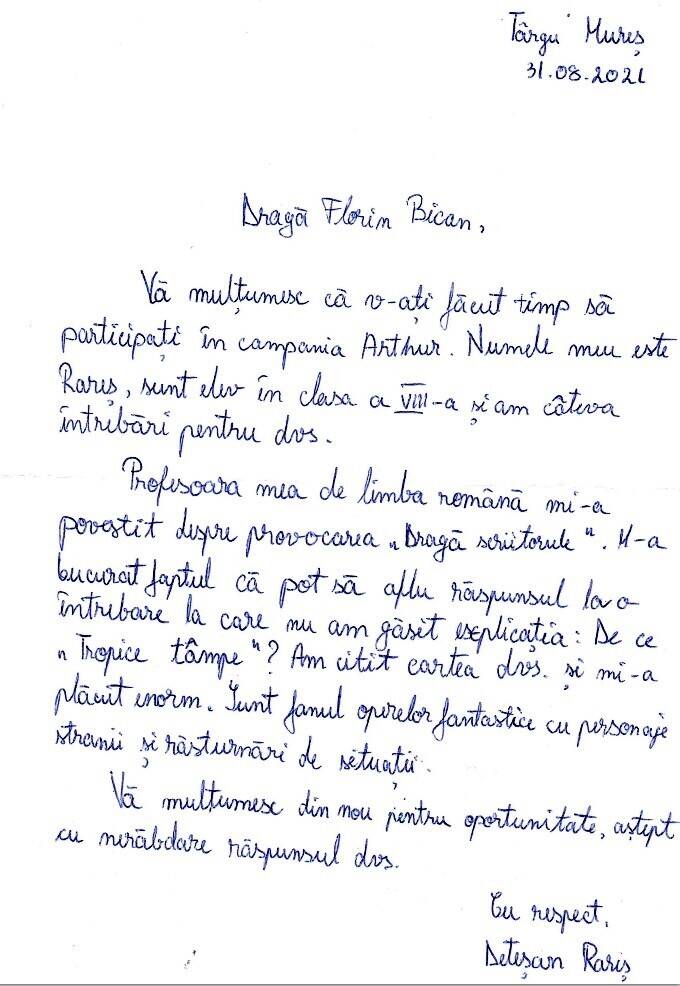 Târgu Mureș
31.08.2021
Dragă Florin Bican,
Vă mulțumesc că v-ați făcut timp să
participați în campania Arthur. Numele meu este
Rareș, sunt elev în clasa a VIII-a și am câteva
întrebări pentru dvs.
Profesoara mea de limba română mi-a
povestit despre provocarea „Dragă scriitorule". M-a
bucurat faptul că pot să aflu răspunsul la o
întrebare la care nu am găsit explicația: De ce
„Tropice tâmpe"? Am citit cartea dvs. și mi-a
plăcut enorm. Sunt fanul operelor fantastice cu personaje
stranii și răsturnări de situații.
Vă mulțumesc din nou pentru oportunitate, aștept
cu nerăbdare răspunsul dvs.
Cu respect,
Deteșan Rareș